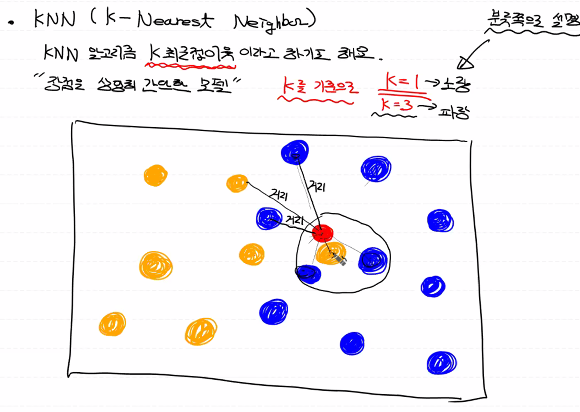 • KNN (K-Nearest Neighbor)
분류쪽으로 설명
KNN 알고리즘 K최근접이웃 이라고 하기도 해요.
"장점은 상당히 간단한 모델"
K를 기준으로
K=1 → 노랑
K=3 → 파랑
거리
거리
거리